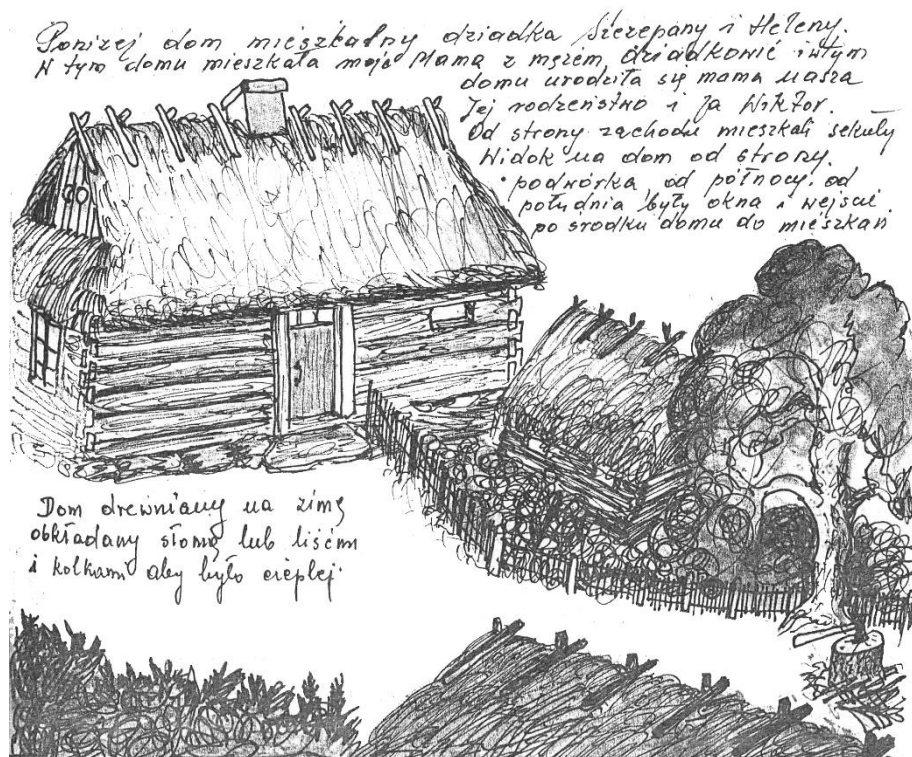 Poniżej dom mieszkalny dziadka Szczepany i Heleny.
W tym domu mieszkała moja Mama z mężem, dziadkowie i w tym
domu urodziła się mama nasza
Jej rodzeństwo i Ja Wiktor.
Od strony zachodu mieszkali sekuły
Widok na dom od strony.
podwórka od północy. od
południa były okna i wejści
po srodku domu do mieszkań
Dom drewniany na zimę
obkładany słomą lub liśćmi
i kołkami aby było cieplej.